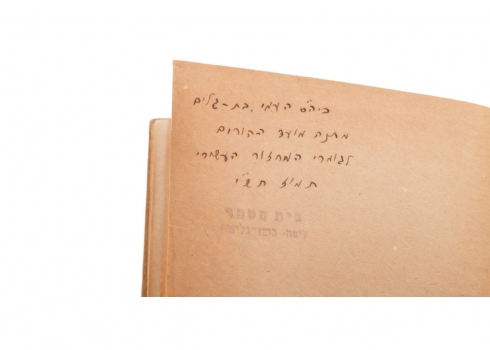 ביה"ס העממי, בת-גלים
מתנה מועד ההורים
לגומרי המחזור העשירי
תמוז תש"י
בית הספר